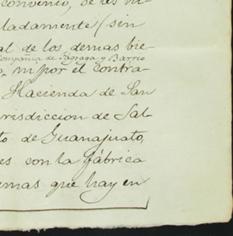 convenio, se les in
ladamente/ sin
al de los demas bie
Compañia de Zaraga y Barrio
ni por el contra-
Hacienda de San
urisdiccion de Sal-
to de Guanajuato,
es con la fábrica
emas que hay en